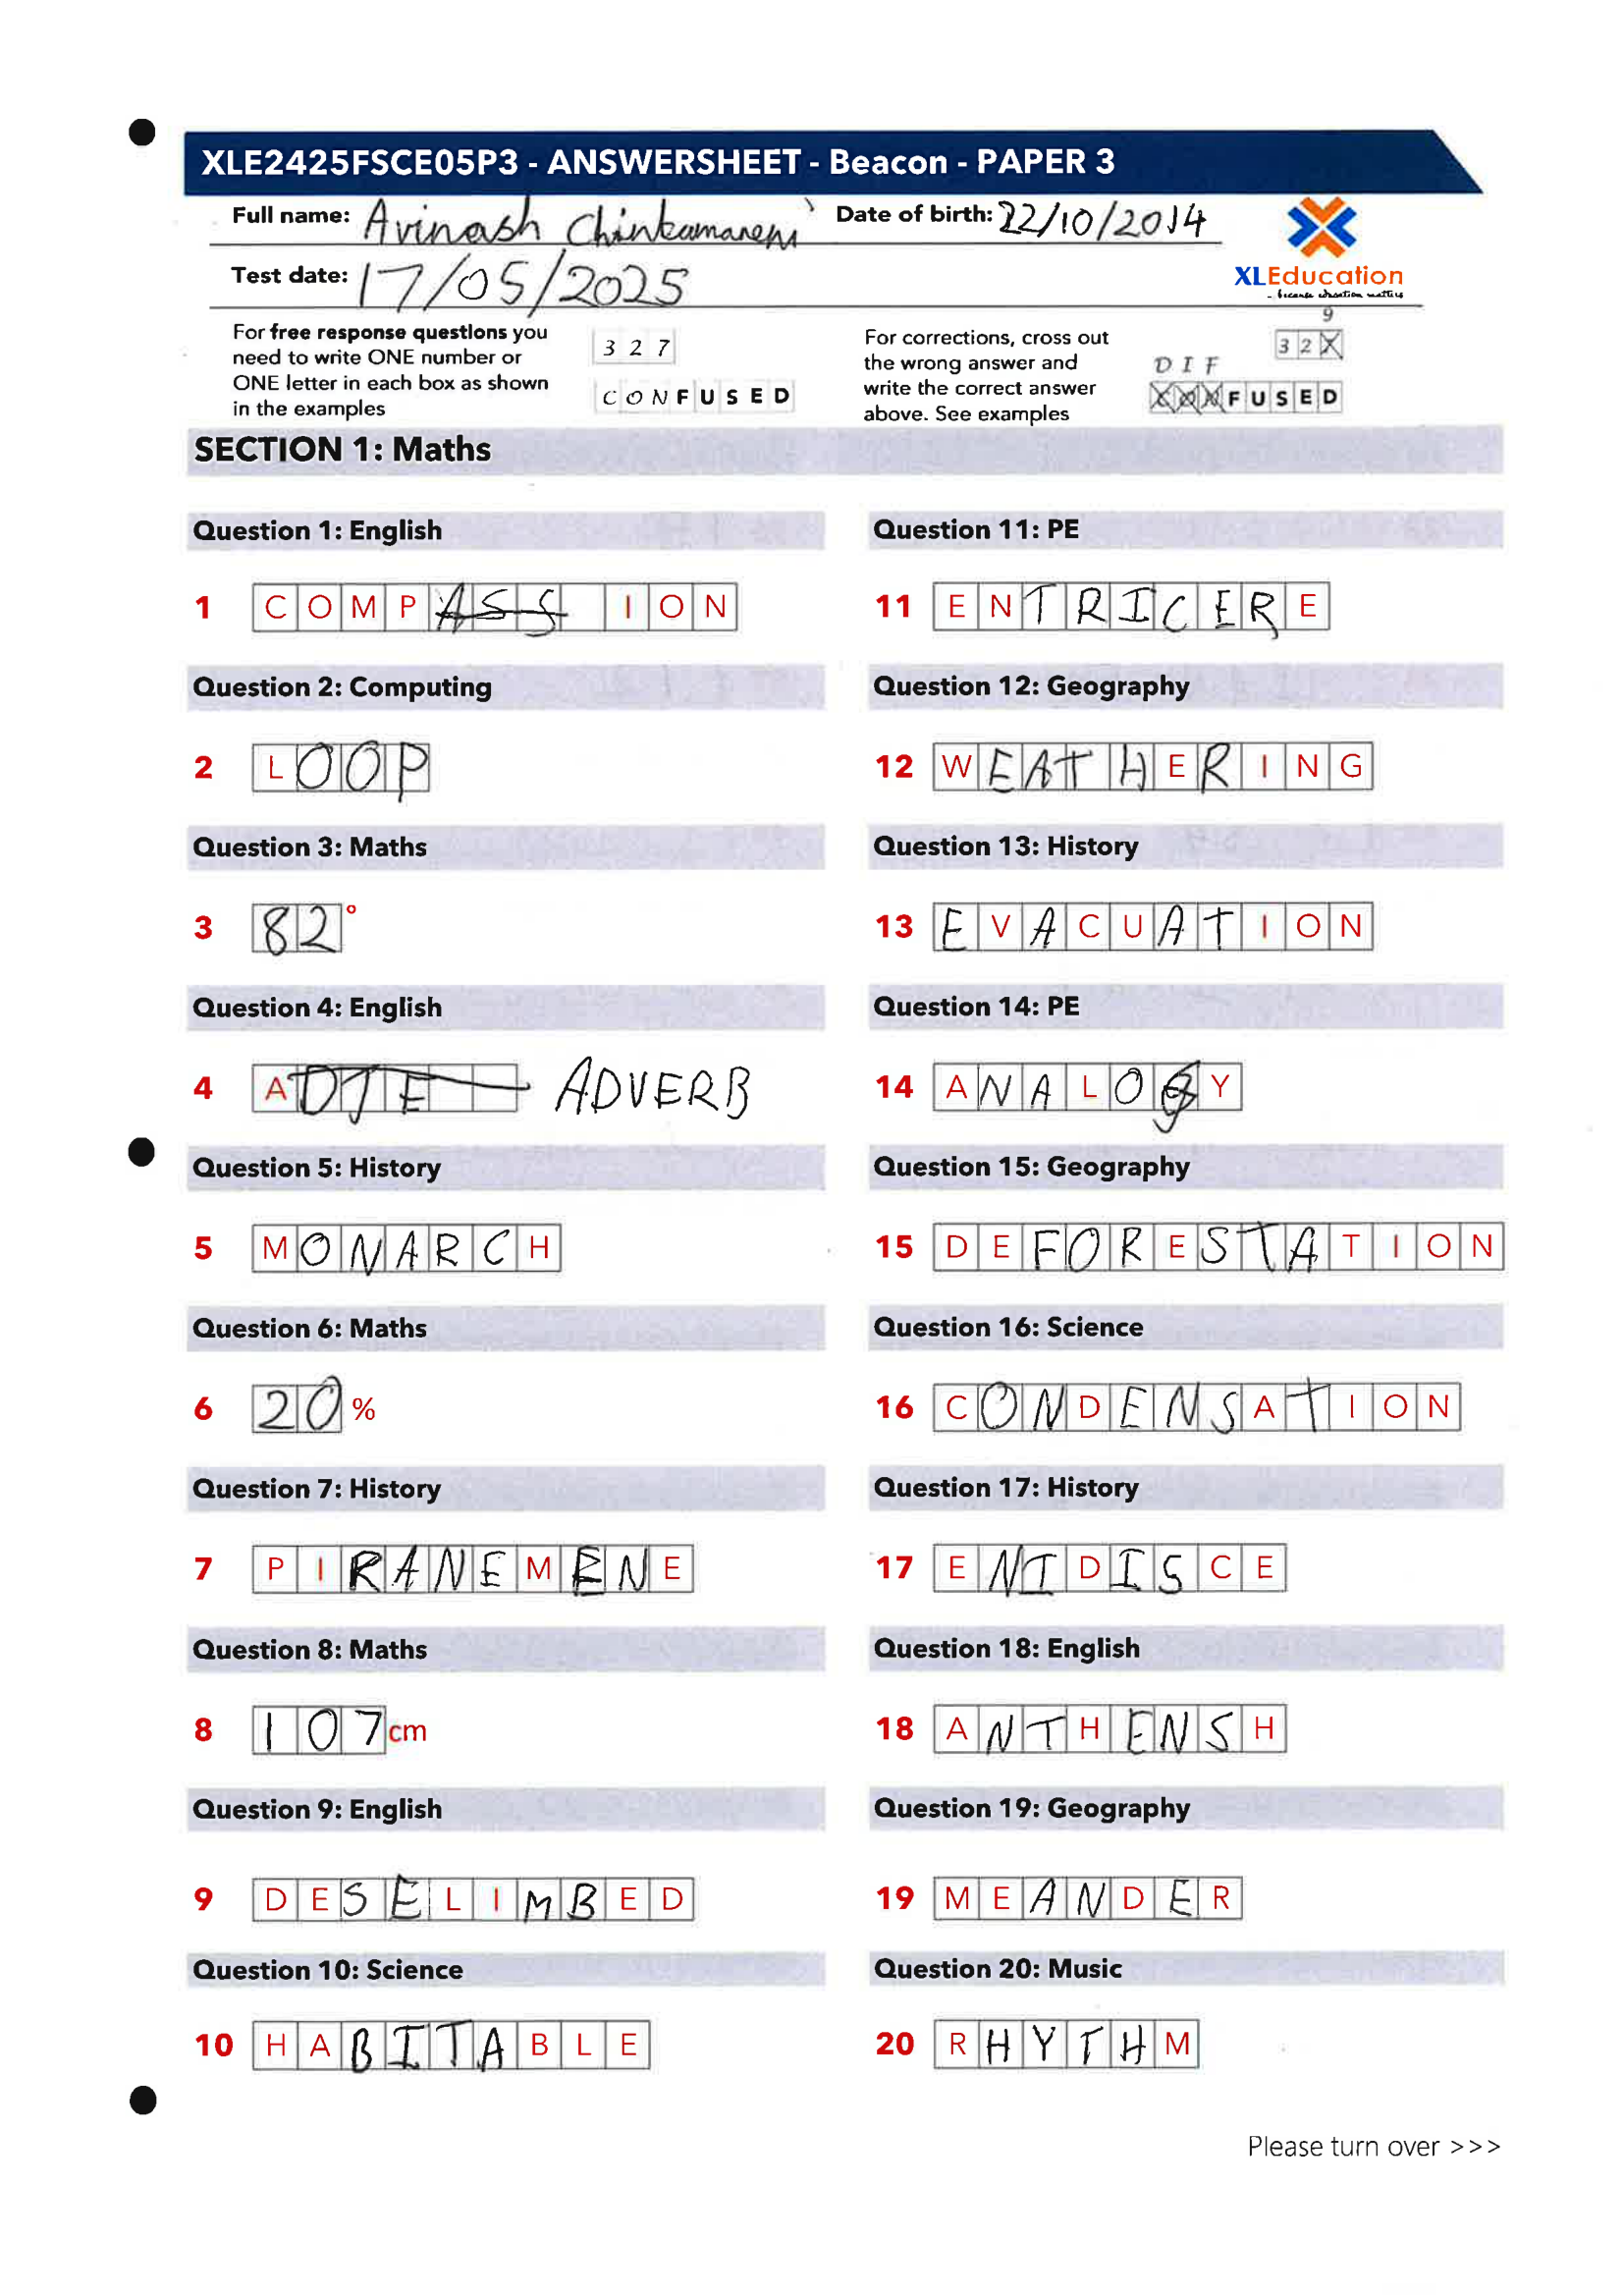 XLE2425FSCE05P3 - ANSWERSHEET - Beacon - PAPER 3
Full name: Avinash Chintamaneni Date of birth: 22/10/2014
Test date: 17/05/2025
XLEducation
- because education matters
For free response questions you
need to write ONE number or
ONE letter in each box as shown
in the examples
3 2 7
C O N F U S E D
For corrections, cross out
the wrong answer and
write the correct answer
above. See examples
9
3 2 X
D I F
F U S E D
SECTION 1: Maths
Question 1: English
1 C O M P A S S I O N
Question 2: Computing
2 L O O P
Question 3: Maths
3 8 2 °
Question 4: English
4 A D J E ADVERB
Question 5: History
5 M O N A R C H
Question 6: Maths
6 2 0 %
Question 7: History
7 P I R A N E M E N E
Question 8: Maths
8 1 0 7 cm
Question 9: English
9 D E S E L I M B E D
Question 10: Science
10 H A B I T A B L E
Question 11: PE
11 E N T R I C E R E
Question 12: Geography
12 W E A T H E R I N G
Question 13: History
13 E V A C U A T I O N
Question 14: PE
14 A N A L O G Y
Question 15: Geography
15 D E F O R E S T A T I O N
Question 16: Science
16 C O N D E N S A T I O N
Question 17: History
17 E N T D I S C E
Question 18: English
18 A N T H E N S H
Question 19: Geography
19 M E A N D E R
Question 20: Music
20 R H Y T H M
Please turn over >>>